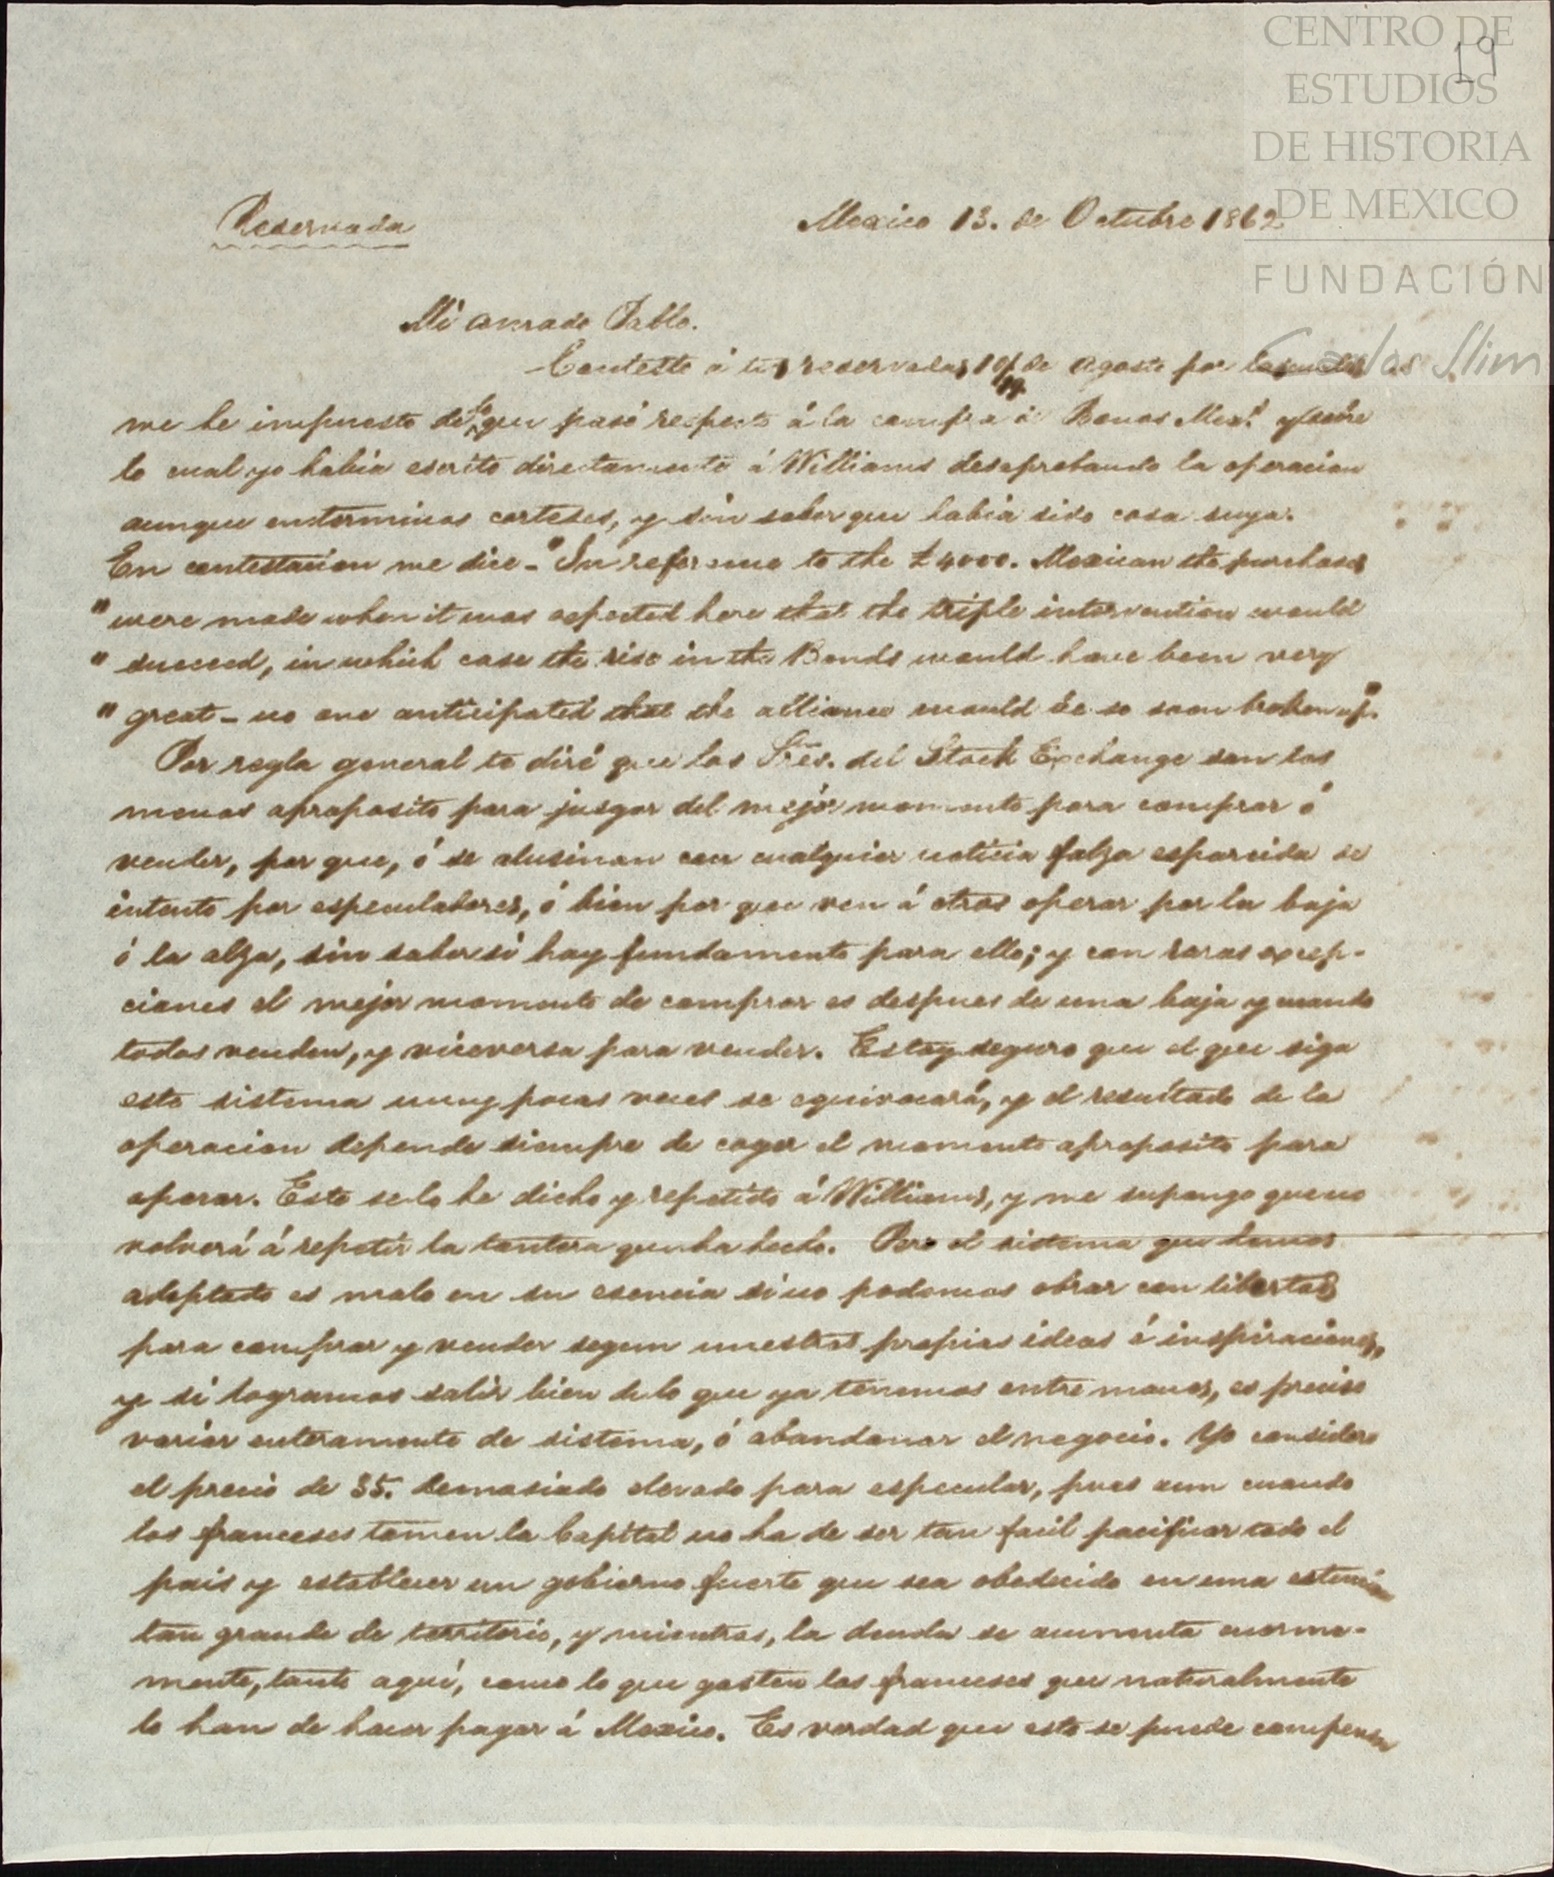 CENTRO DE
ESTUDIOS
DE HISTORIA
DE MEXICO
FUNDACIÓN
Carlos Slim
19
Reservada
Mexico 13. de Octubre 1862
Mi amado Pablo.
Contesto á tus reservadas de Agosto por
me he impuesto de lo que pasó respecto á la compra de Bonos Mex.s y sobre
lo cual yo habia escrito directamente á Williams desaprobando la operacion
aunque en terminos corteses, y sin saber que habia sido cosa suya.
En contestacion me dice - "In reference to the £4000. Mexican the purchases
" were made when it was expected here that the triple intervention would
" succeed, in which case the rise in the Bonds would have been very
" great - no one anticipated that the alliance would be so soon broken up."
Por regla general te diré que los Sres. del Stock Exchange son los
menos aproposito para jusgar del mejor momento para comprar ó
vender, por que, ó se alusinan con cualquier noticia falza esparcida de
intento por especuladores, ó bien por que ven á otros operar por la baja
ó la alza, sin saber si hay fundamento para ello; y con raras excep-
ciones el mejor momento de comprar es despues de una baja y cuando
todos venden, y viceversa para vender. Estoy seguro que el que siga
este sistema muy pocas veces se equivocará, y el resultado de la
operacion depende siempre de coger el momento aproposito para
operar. Esto se lo he dicho y repetido á Williams, y me supongo que no
volverá á repetir la tontera que ha hecho. Pero el sistema que hemos
adoptado es malo en su esencia si no podemos obrar con libertad
para comprar y vender segun nuestras propias ideas é inspiraciones,
y si logramos salir bien de lo que ya tenemos entre manos, es preciso
variar enteramente de sistema, ó abandonar el negocio. Yo considero
el precio de 35. demasiado elevado para especular, pues aun cuando
los franceses tomen la Capital no ha de ser tan facil pacificar todo el
pais y establecer un gobierno fuerte que sea obedecido en una estencion
tan grande de territorio, y mientras, la deuda se aumenta enorme-
mente, tanto aquí, como lo que gasten los franceses que naturalmente
lo han de hacer pagar á Mexico. Es verdad que esto se puede compensar